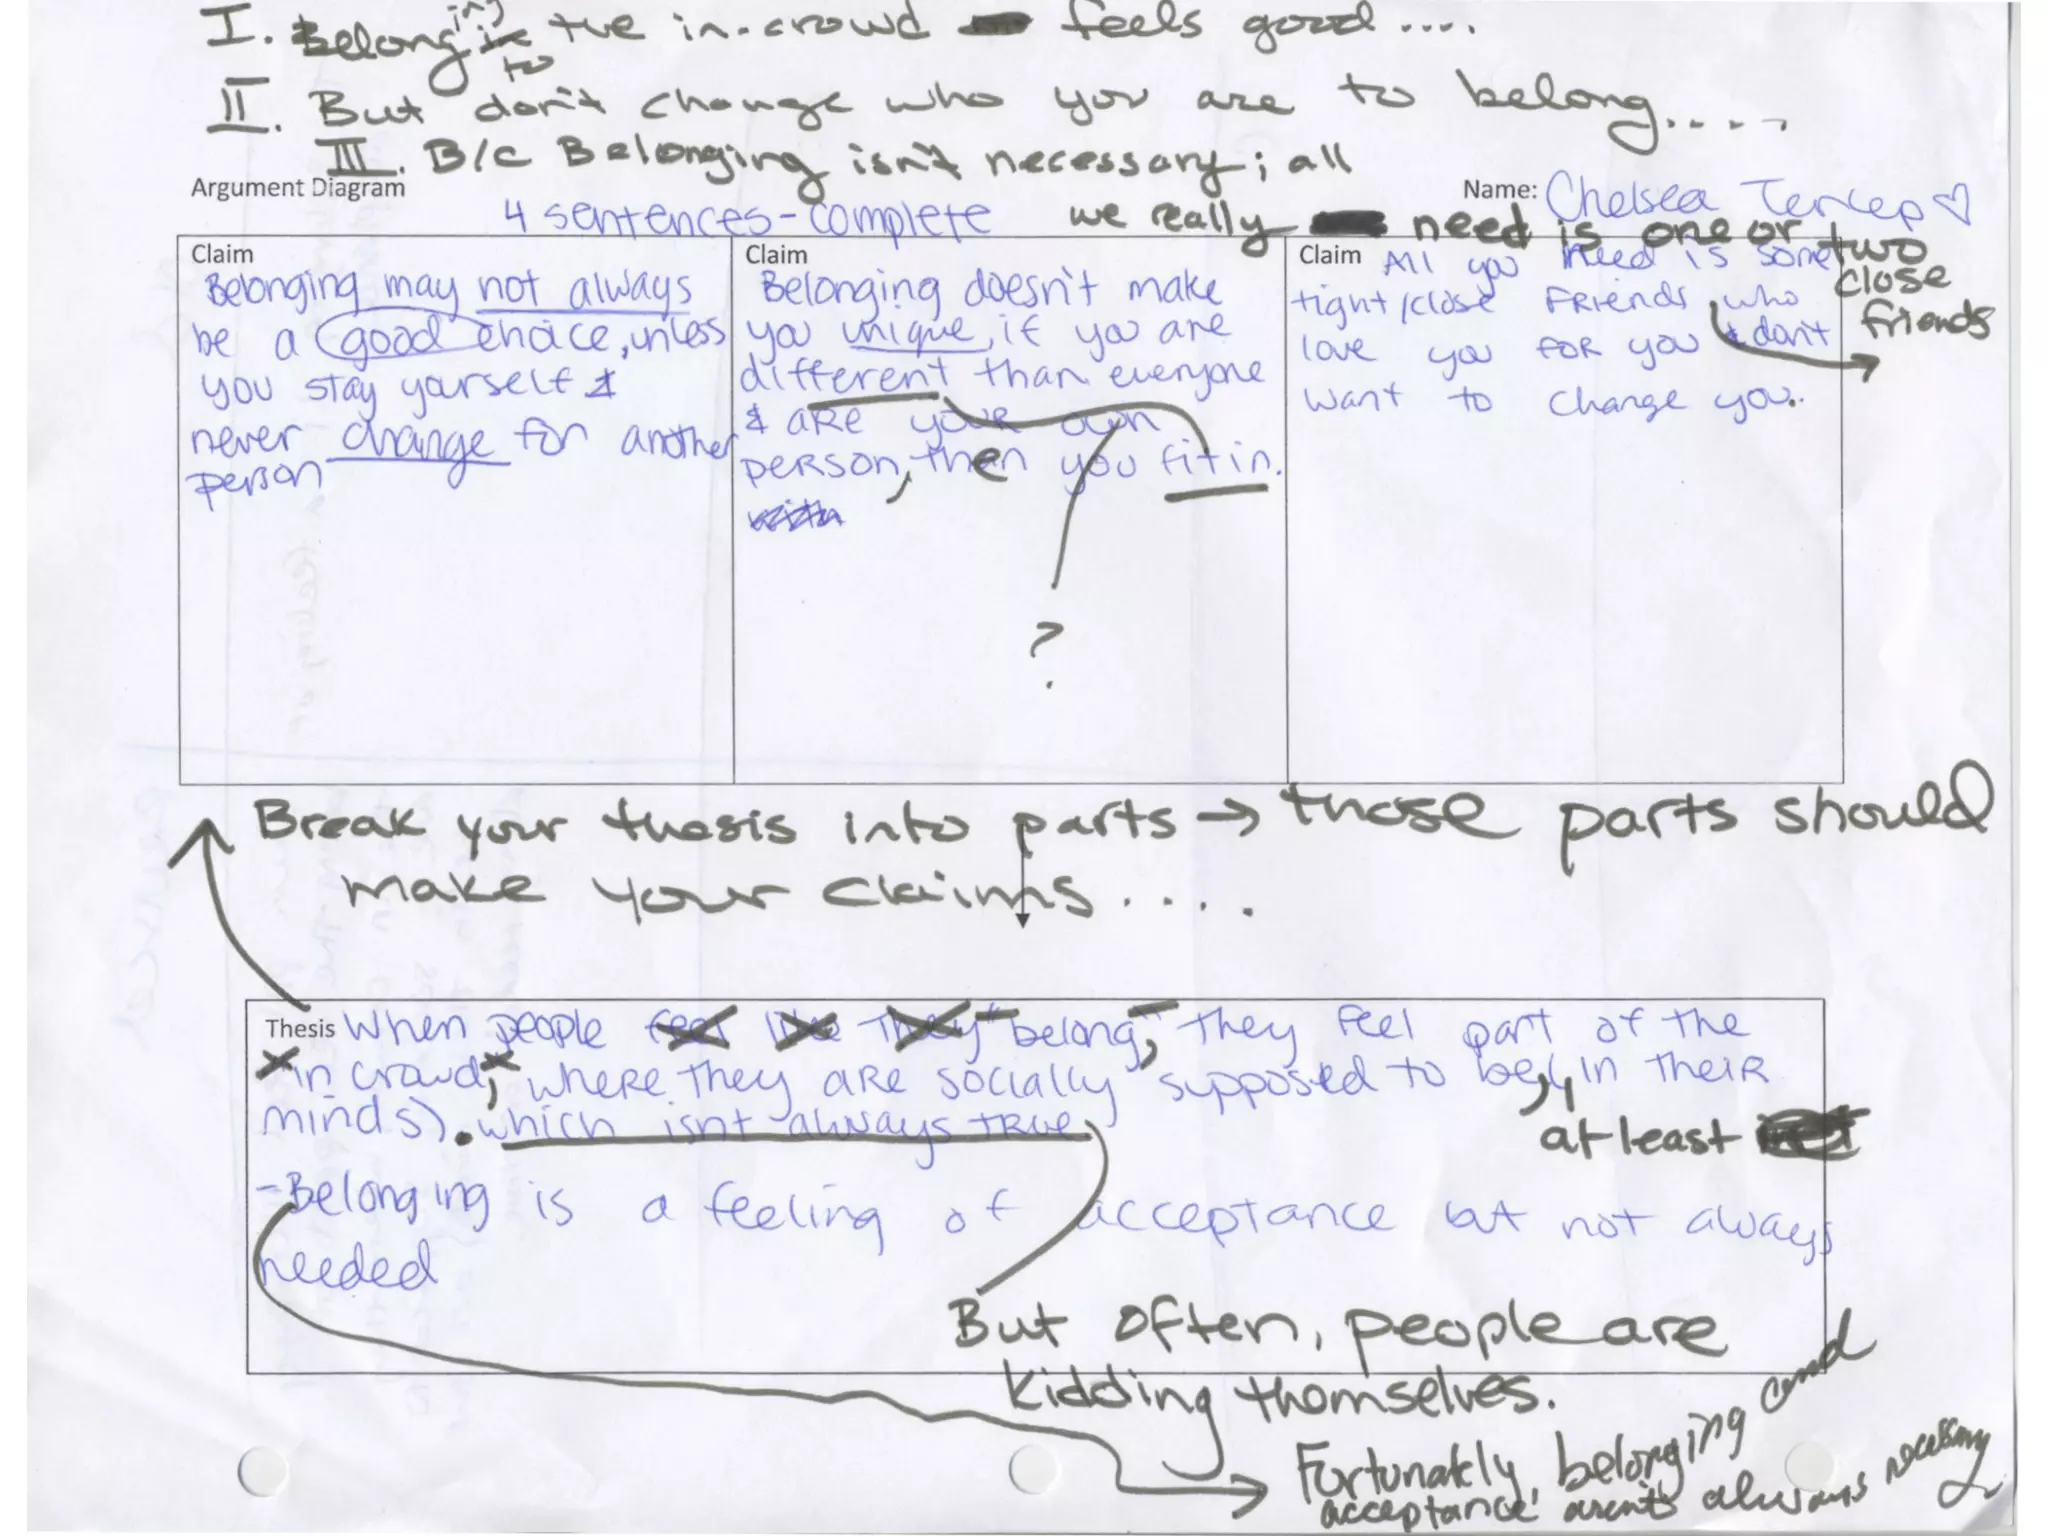 I. Belonging to the in-crowd feels good....
II. But don't change who you are to belong.....
III. B/c Belonging isn't necessary; all
we really need is one or two
close
friends
Argument Diagram
Name: Chelsea
4 sentences-complete
Claim
Belonging may not always
be a good choice, unless
you stay yourself &
never change for another
person
Claim
Belonging doesn't make
you unique, if you are
different than everyone
& are your own
person, then you fit in.
with
?
Claim All you need is some
tight/close friends who
love you for you & don't
want to change you.
Break your thesis into parts → those parts should
make your claims....
Thesis When people feel like they "belong," they feel part of the
in crowd, where they are socially supposed to be, in their
minds). which isnt always true
at least
-Belonging is a feeling of acceptance but not always
needed
But often, people are
kidding themselves.
Fortunately, belonging and
acceptance aren't always necessary